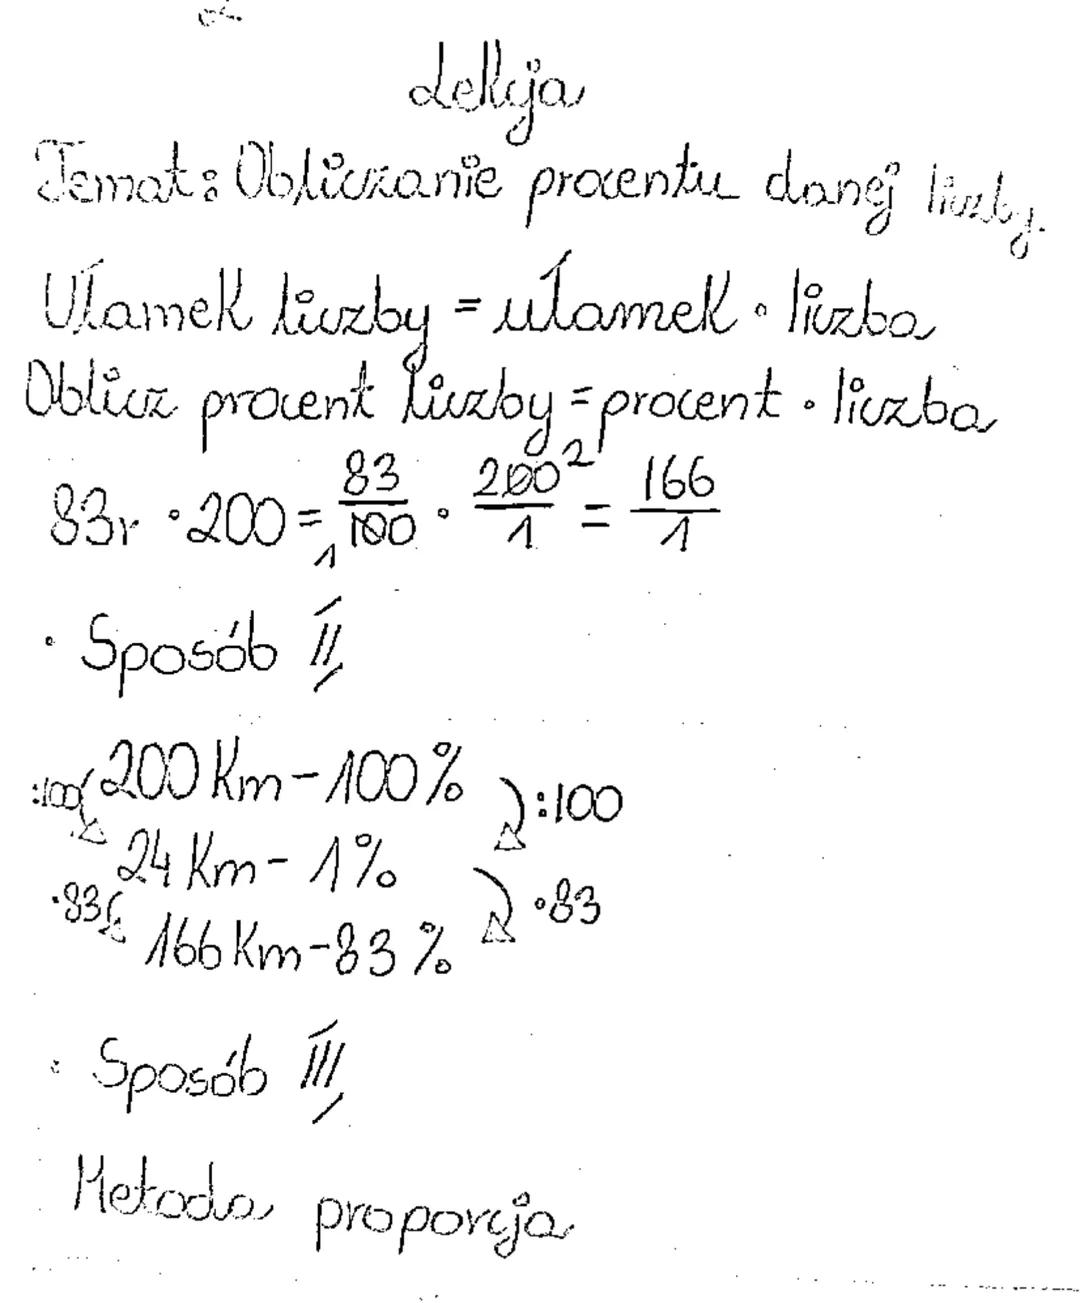 Lekcja
Temat: Obliczanie procentu danej liczby.
Ułamek liczby = ułamek · liczba
Oblicz procent liczby = procent · liczba
83r · 200 = 83/100 · 200/1 = 166/1
1 2
· Sposób II
:100 200 Km - 100% :100
24 Km - 1%
·83 166 Km - 83% ·83
· Sposób III
Metoda proporcja